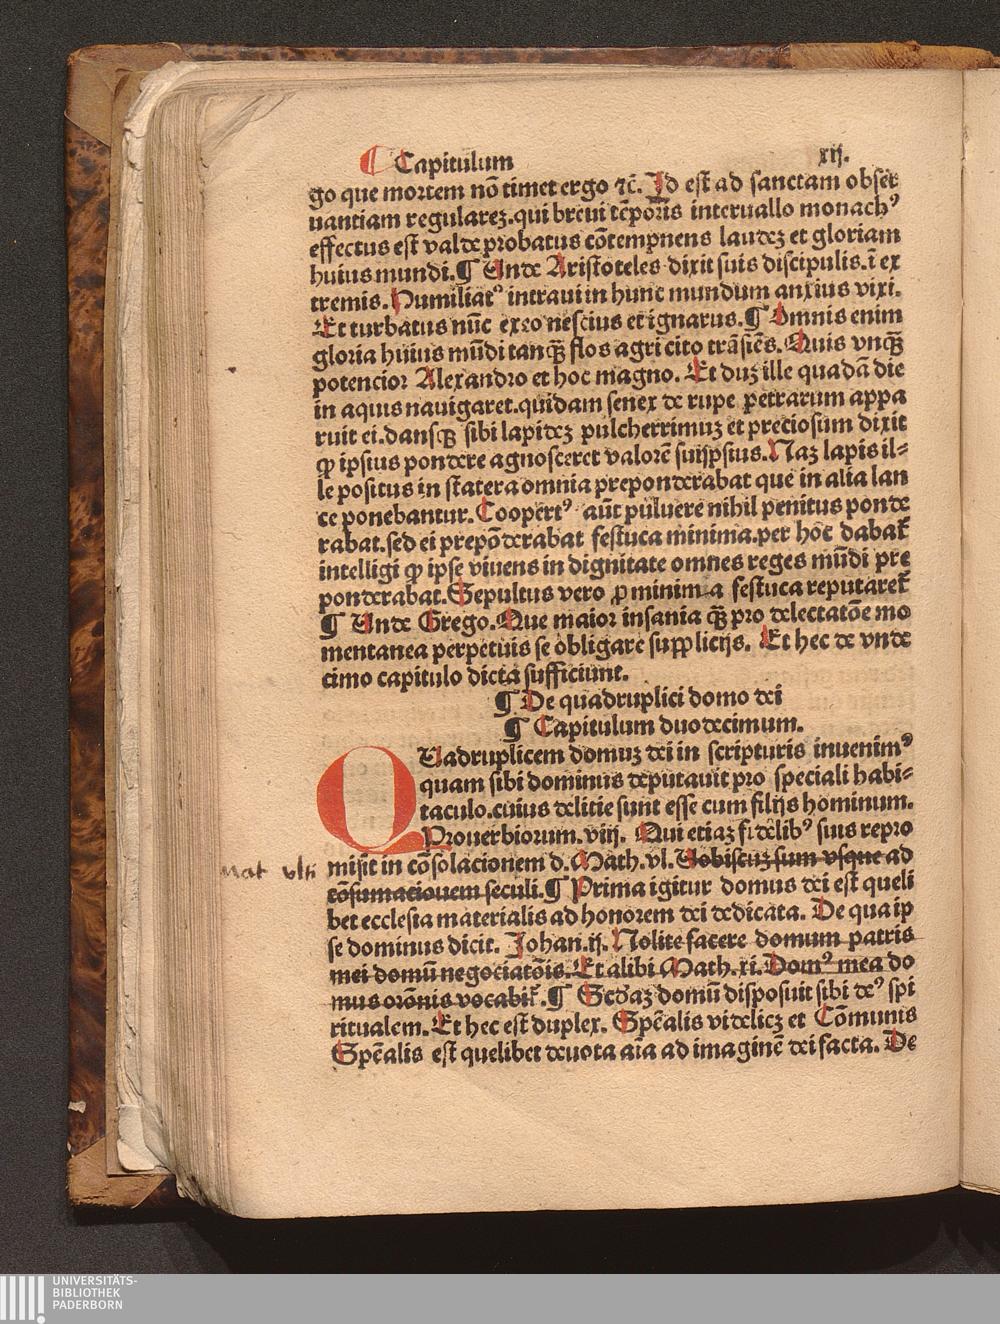 ¶ Capitulum xij.
go que mortem nō timet ergo ⁊c̄. Id est ad sanctam obser
uantiam regularez.qui breui tēporis interuallo monachꝰ
effectus est valde probatus cōtempnens laudez et gloriam
huius mundi.¶ Unde Aristoteles dixit suis discipulis.ī ex
tremis. Humiliatꝰ intraui in hunc mundum anxius vixi.
Et turbatus nūc exeo nescius et ignarus.¶ Omnis enim
gloria huius mūdi tanqȝ flos agri cito trāsiēs. Quis vnqȝ
potencior Alexandro et hoc magno. Et duȝ ille quadā die
in aquis nauigaret.quidam senex de rupe petrarum appa
ruit ei.dansqȝ sibi lapidez pulcherrimuȝ et preciosum dixit
ꝙ ipsius pondere agnosceret valorē suiipsius. Naȝ lapis il-
le positus in statera omnia preponderabat que in alia lan
ce ponebantur. Coopertꝰ aūt puluere nihil penitus ponde
rabat.sed ei prepōderabat festuca minima.per hoc dabat̄
intelligi ꝙ ipse viuens in dignitate omnes reges mūdi pre
ponderabat. Sepultus vero ꝓ minima festuca reputaret̄
¶ Unde Grego. Que maior insania qȝ pro delectatōe mo
mentanea perpetuis se obligare supplicijs. Et hec de vnde
cimo capitulo dicta sufficiunt.
¶ De quadruplici domo dei
¶ Capitulum duodecimum.
QUadruplicem domuȝ dei in scripturis inuenimꝰ
quam sibi dominus deputauit pro speciali habi-
taculo.cuius delitie sunt esse cum filijs hominum.
Prouerbiorum. viij. Qui etiaȝ fidelibꝰ suis repro
Mat vlti misit in cōsolacionem d. Math. vl. Uobiscuȝ sum vsque ad
cōsumationem seculi.¶ Prima igitur domus dei est queli
bet ecclesia materialis ad honorem dei dedicata. De qua ip
se dominus dicit. Johan.ij. Nolite facere domum patris
mei domū negociatōis. Et alibi Math. xi. Domꝰ mea do
mus orōnis vocabit̄.¶ Scd̄aȝ domū disposuit sibi deꝰ spi
ritualem. Et hec est duplex. Spēalis videlicȝ et Cōmunis
Spēalis est quelibet deuota aīa ad imaginē dei facta. De
UNIVERSITÄTS-
BIBLIOTHEK
PADERBORN